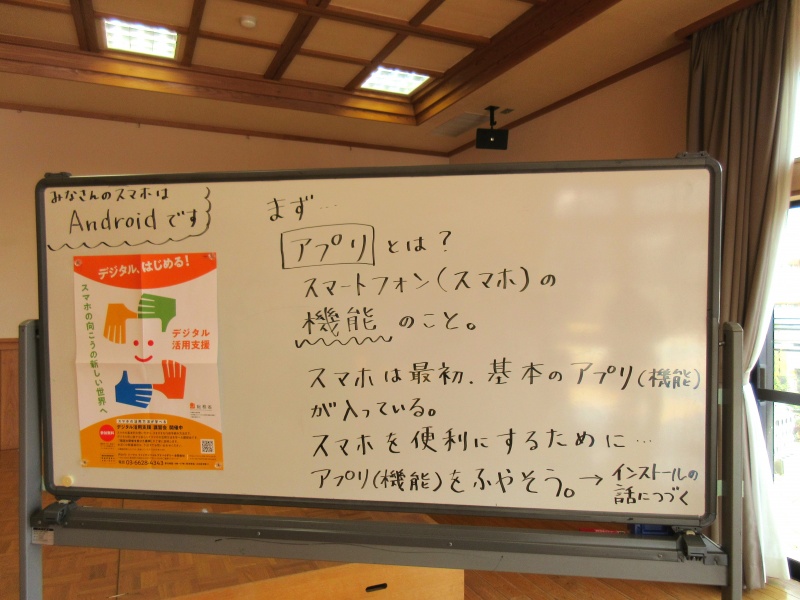 みなさんのスマホは
Androidです
まず…
アプリとは?
スマートフォン(スマホ)の
機能のこと。
スマホは最初、基本のアプリ(機能)
が入っている。
スマホを便利にするために…
アプリ(機能)をふやそう。→インストールの
話につづく
デジタル、はじめる!
スマホの向こうの新しい世界へ
デジタル
活用支援
総務省
デジタル活用支援
開催中
03-6626-4343